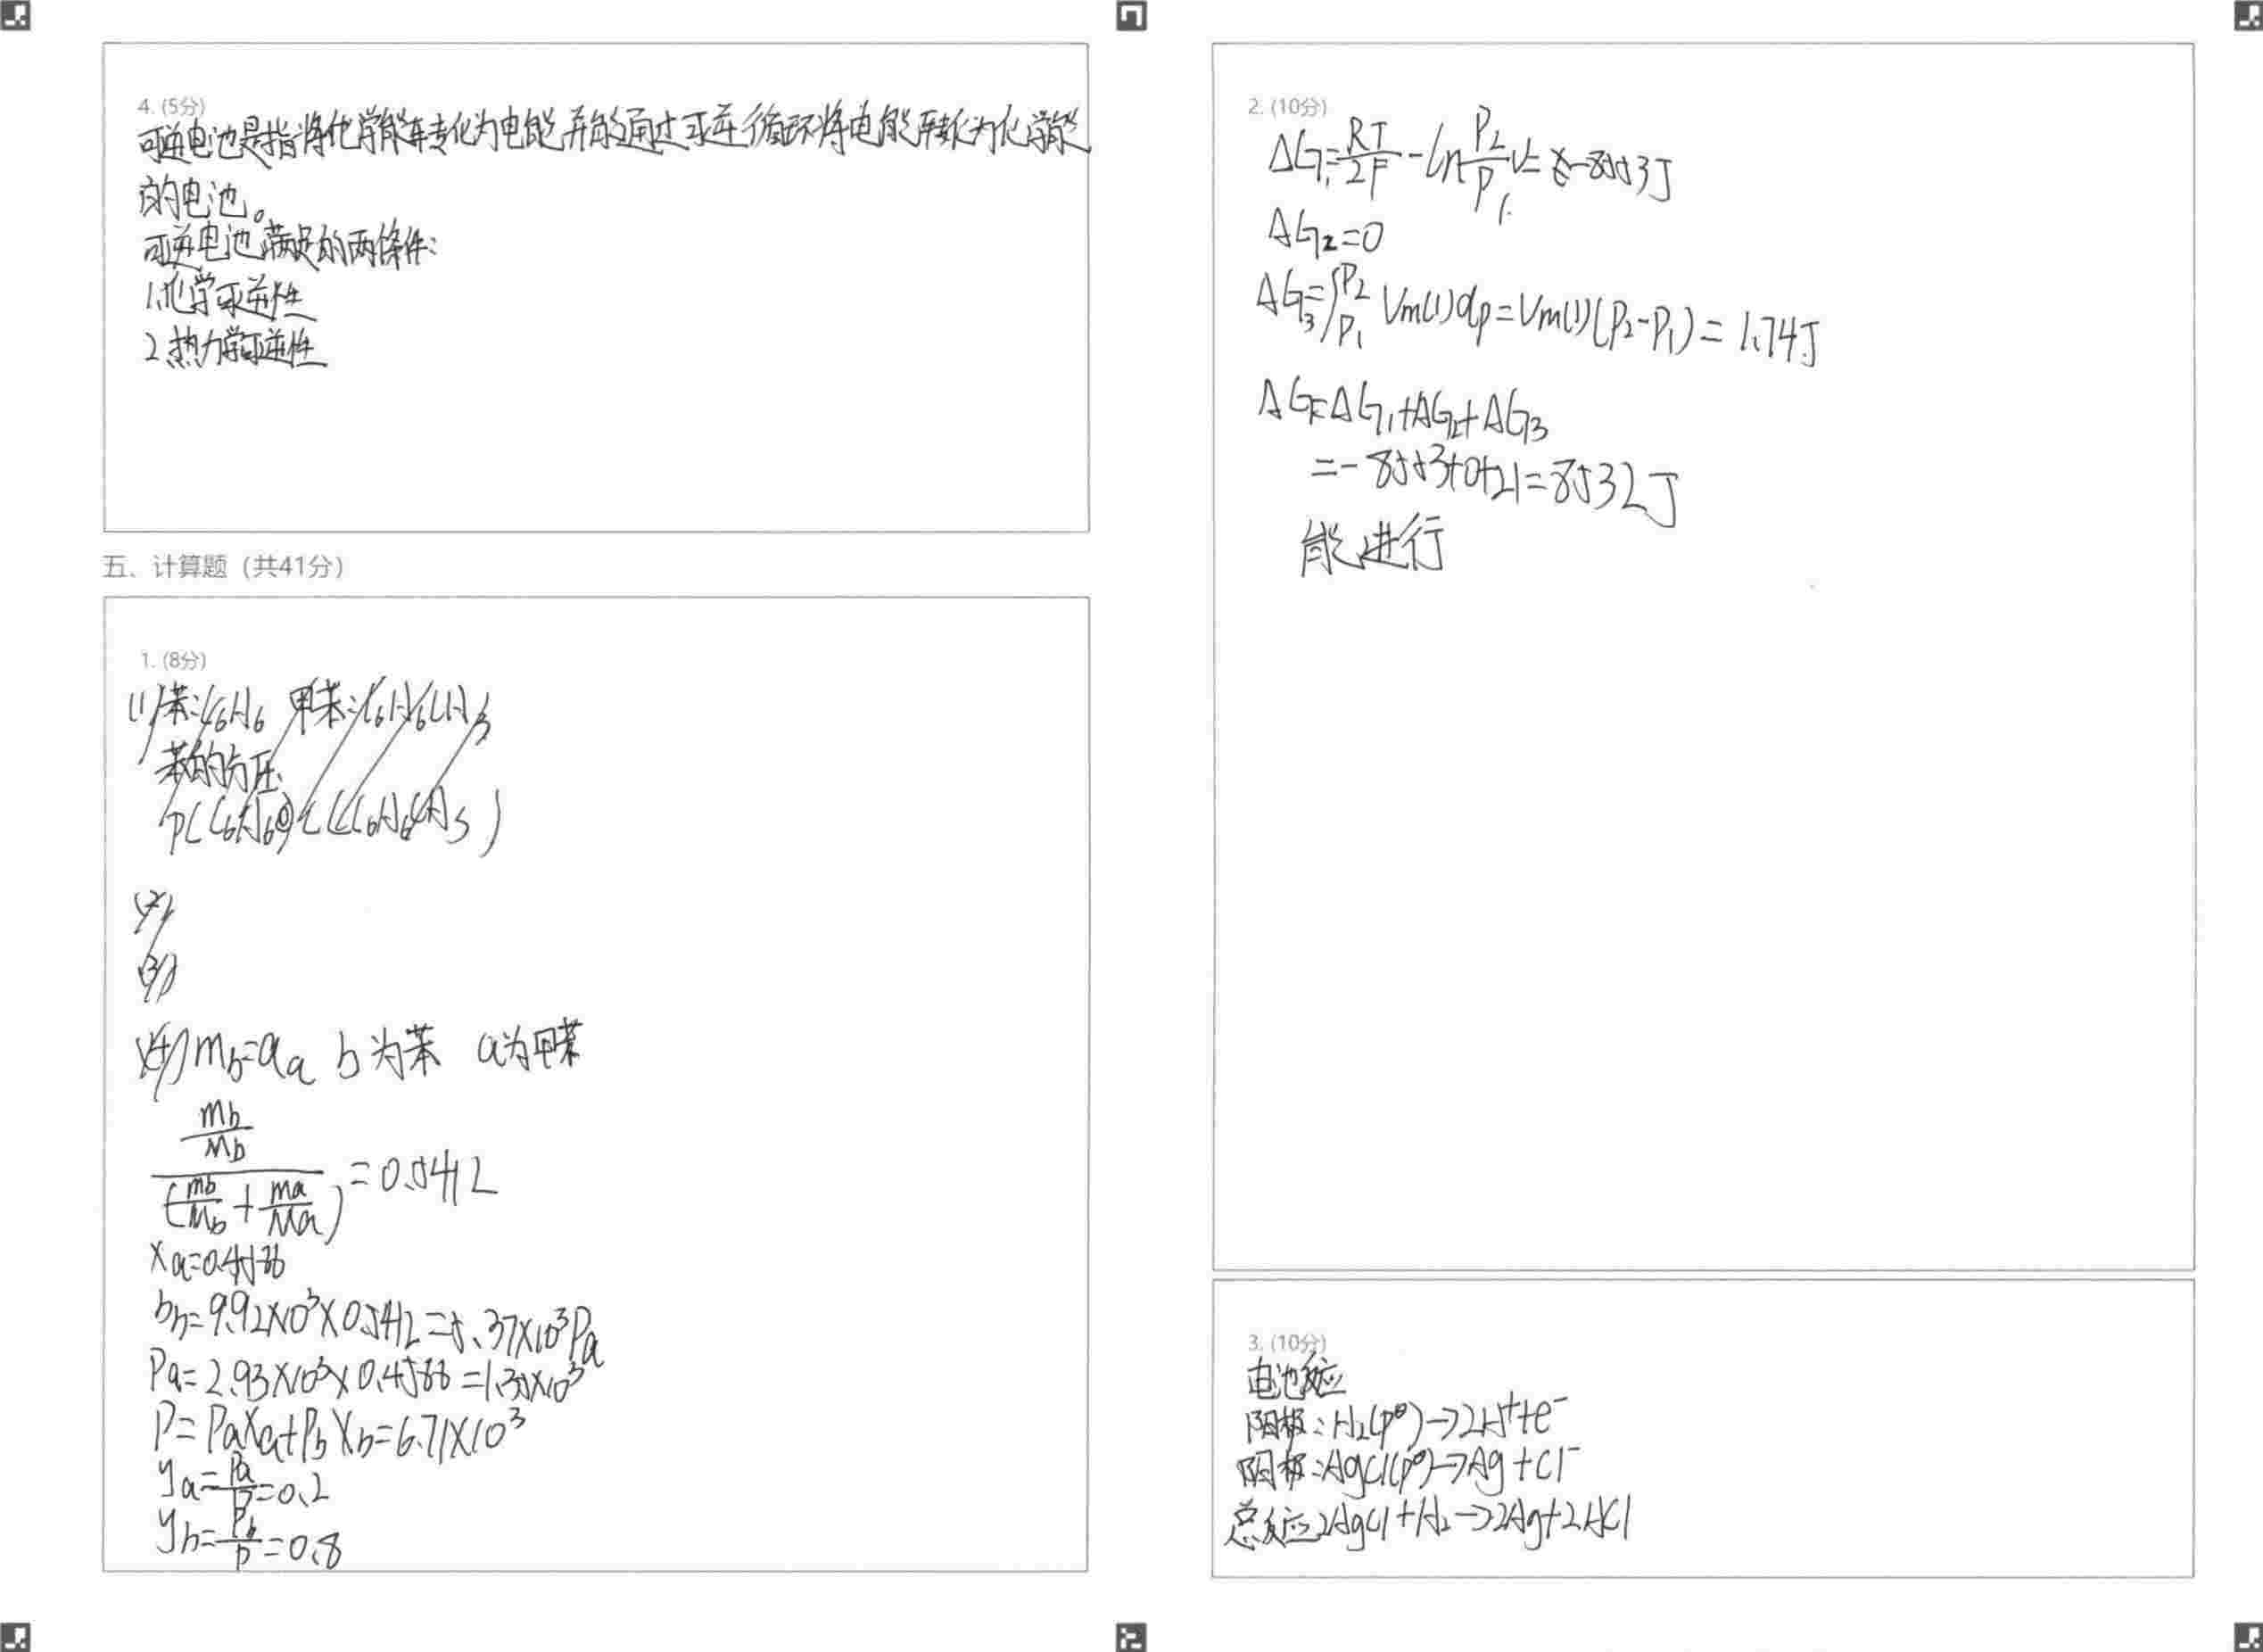 4. (5分)
可逆电池是指将化学能转化为电能并能通过可逆循环将电能转化为化学能
的电池。
可逆电池满足的两条件:
1.化学可逆性
2.热力学可逆性
五、计算题（共41分）
1. (8分)
(1)苯:C6H6 甲苯:C6H6CH3
苯的分压
(2)
(3)
(4) mb=aa b为苯 a为甲苯
mb/Mb
/(mb/Mb + ma/Ma) =0.5412
xa=0.4588
Pb=9.92×10³×0.5412=5.37×10³Pa
Pa=2.93×10³×0.4588=1.35×10³
P=PaXa+PbXb=6.71×10³
ya=Pa/P=0.2
yb=Pb/P=0.8
2. (10分)
ΔG1=RT/2F-ln P2/P1
ΔG2=0
ΔG3=∫P1P2 Vm(l)dp=Vm(l)(P2-P1)=1.74J
ΔG=ΔG1+ΔG2+ΔG3
=-8553+0+21=8532J
能进行
3. (10分)
电池反应
阳极:H2(pθ)→2H⁺+e⁻
阴极:AgCl(pθ)→Ag+Cl⁻
总反应2AgCl+H2→2Ag+2HCl